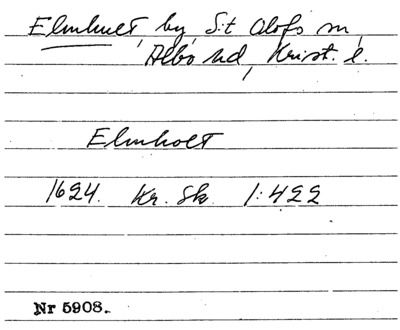 Elmhult, by, S:t Olofs sn,
Albo hd, Krist. l.
Elmholt
1624. Kr. Sk. 1:422
Nr 5908.